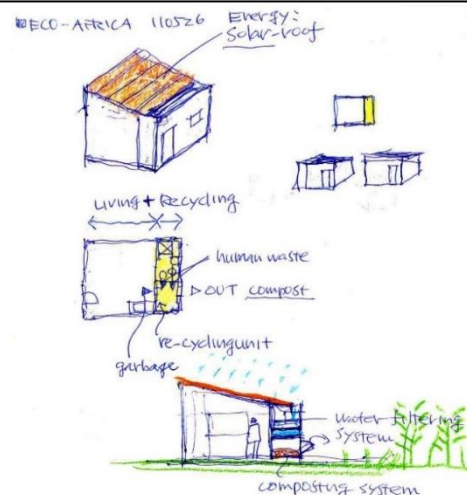 ECO-AFRICA 110526
Energy:
Solar-roof
Living + Recycling
human waste
OUT compost
re-cyclingunit
garbage
water filtering
system
composting system